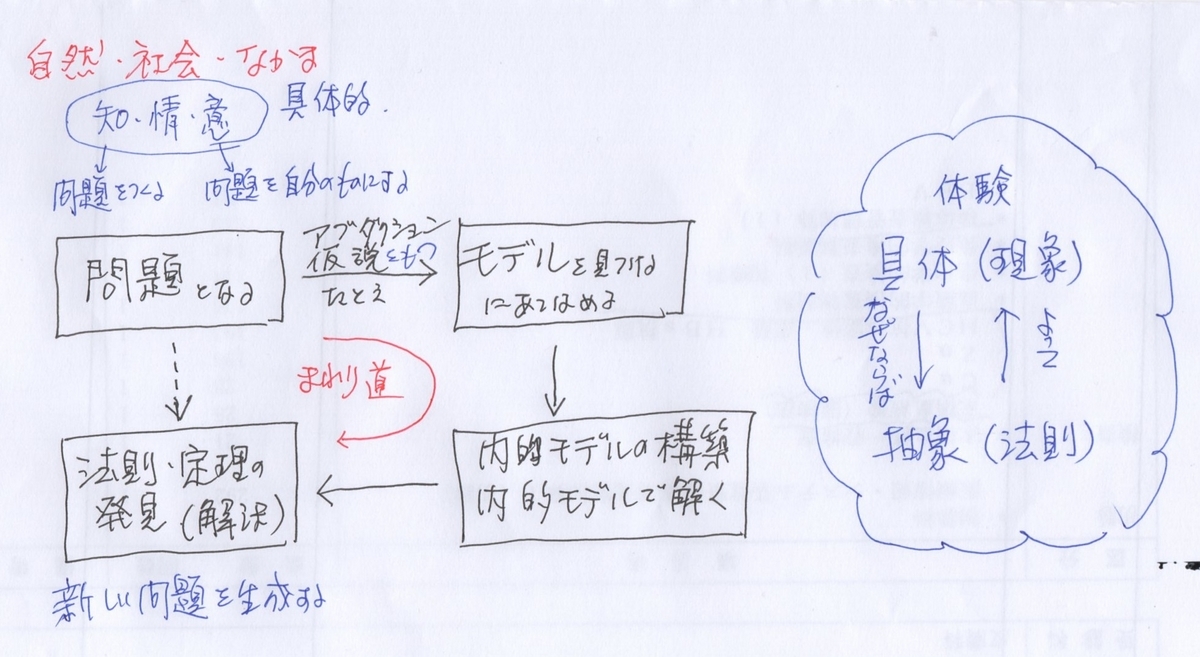 自然・社会・なかま
知・情・意
具体的.
問題をつくる
問題を自分のものにする
問題となる
アブダクション
仮説をもつ
たとえ
モデルを見つける
にあてはめる
まわり道
法則・定理の
発見(解決)
内的モデルの構築
内的モデルで解く
新しい問題を生成する
体験
具体(現象)
なぜならば
よって
抽象(法則)